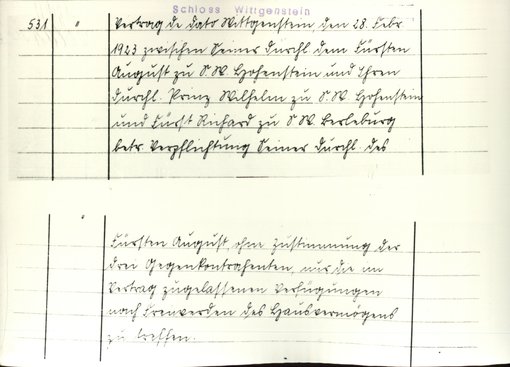 Schloss Wittgenstein
531 " Vertrag de dato Wittgenstein, den 28. Febr
1923 zwischen Seiner Durchl. dem Fürsten
August zu S. W. Hohenstein und Ihren
Durchl. Prinz Wilhelm zu S. W. Hohenstein
und Fürst Richard zu S. W. Berleburg
betr. Verpflichtung Seiner Durchl. des
"
Fürsten August, ohne Zustimmung der
drei Gegenkontrahenten, nur die im
Vertrag zugelassenen Verfügungen
nach Freiwerden des Hausvermögens
zu treffen.